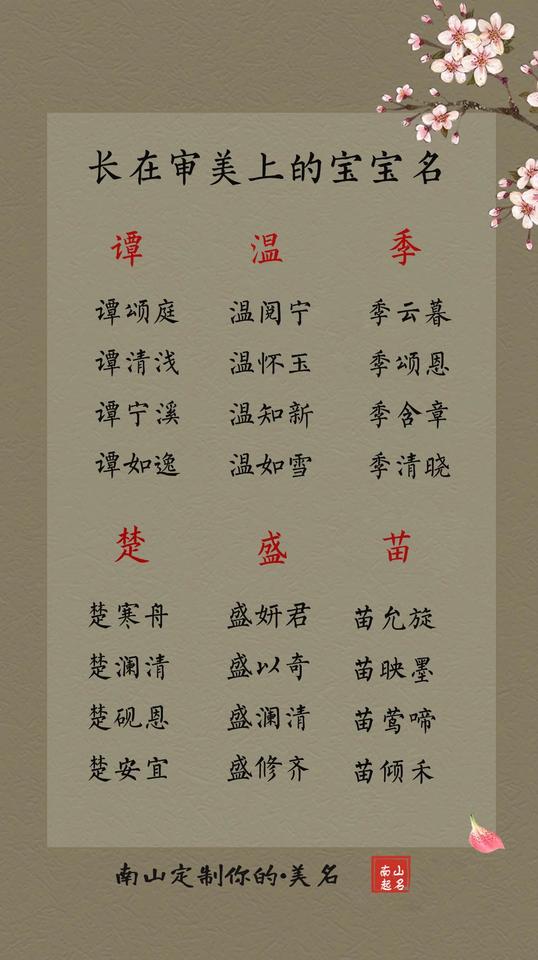 长在审美上的宝宝名
谭 温 季
谭颂庭 温阅宁 季云暮
谭清浅 温怀玉 季颂恩
谭宁溪 温知新 季含章
谭如逸 温如雪 季清晓
楚 盛 苗
楚寒舟 盛妍君 苗允旋
楚澜清 盛以奇 苗映墨
楚砚恩 盛澜清 苗莺啼
楚安宜 盛修齐 苗倾禾
南山定制你的·美名
南山
起名